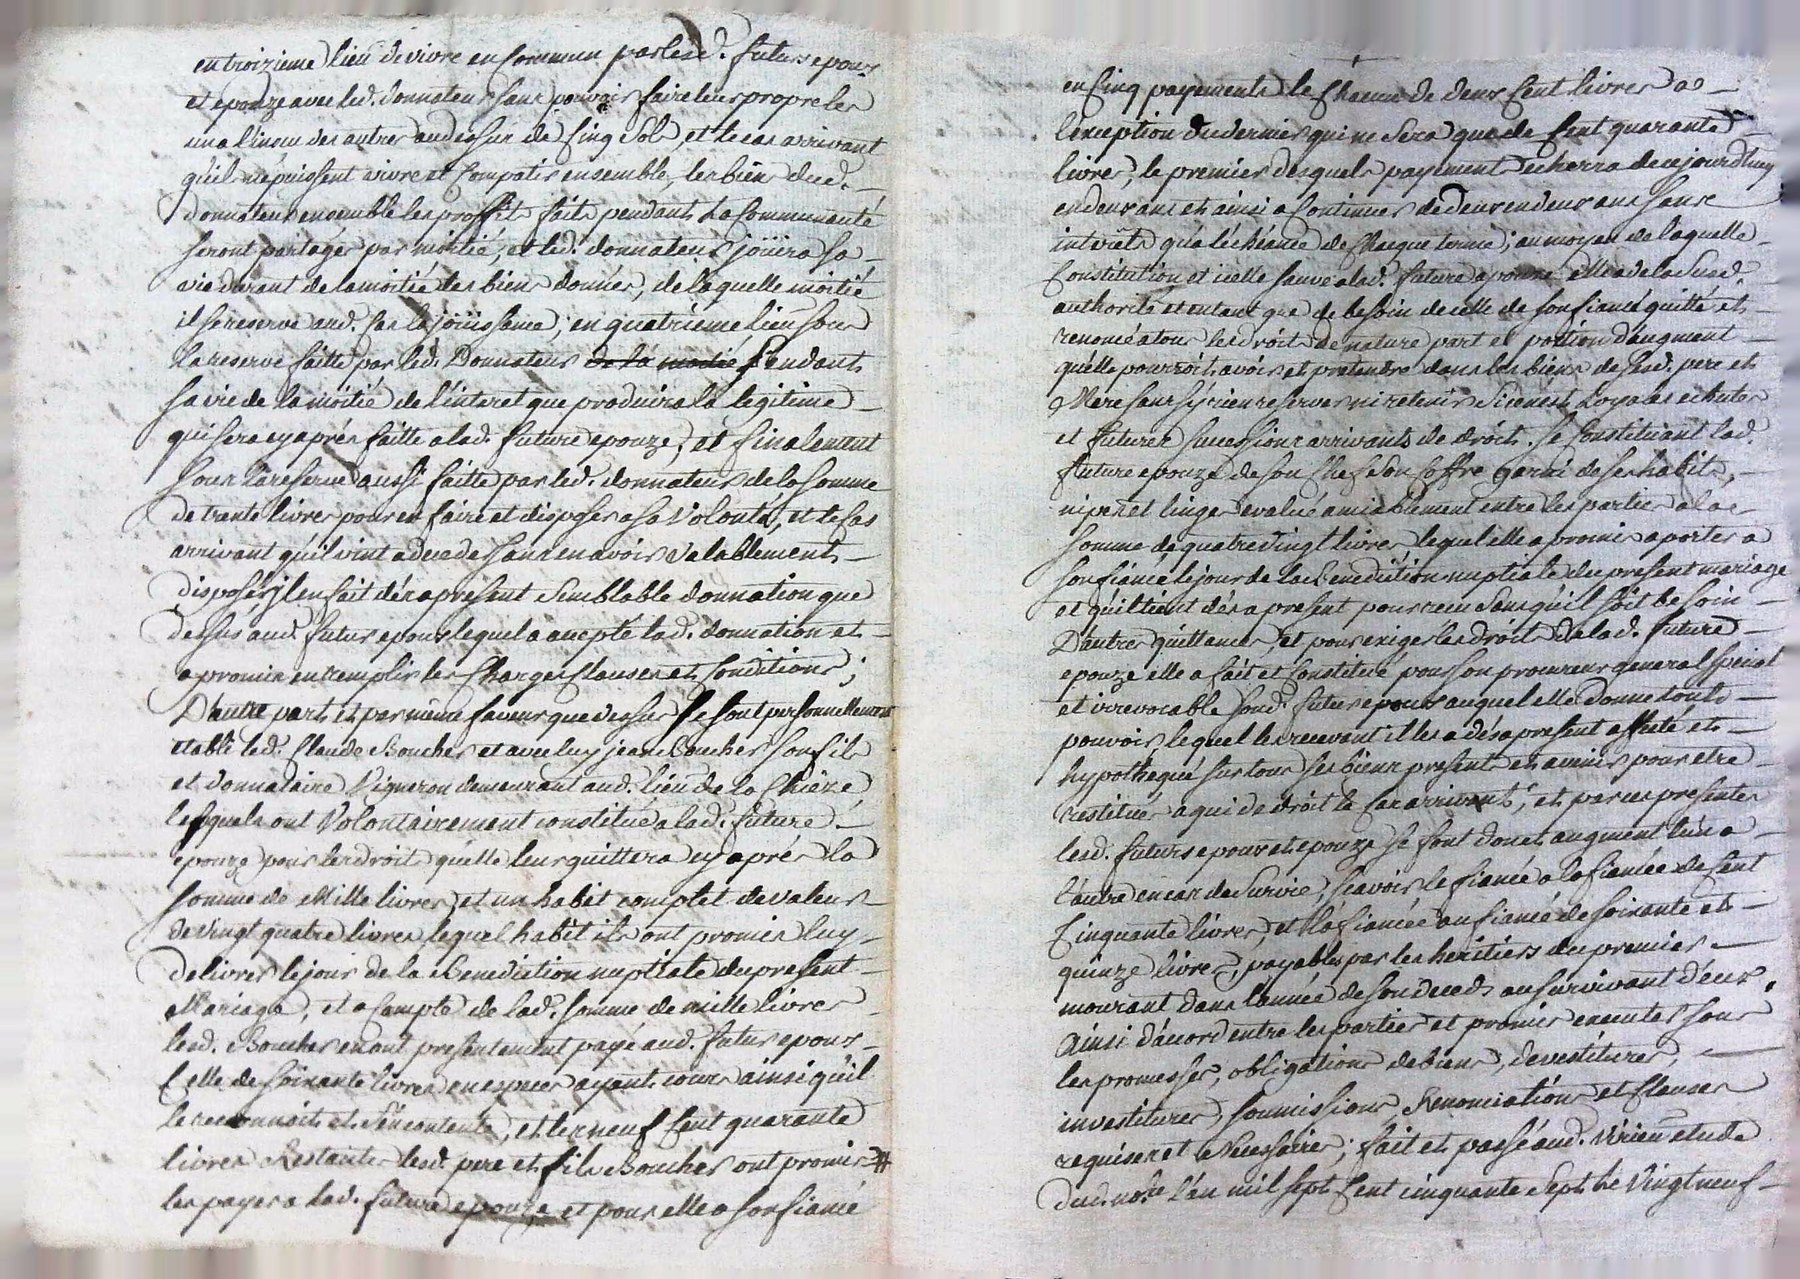 en troizieme lieu de vivre en Commun par lesd. futurs epoux
et epouze avec led. donnateur sans pouvoir faire leurs propre les
un a linscu des autres audessus de Cinq Sols, et le cas arrivant
qu'ils ne puissent vivre et Compatir ensemble, les biens dud.
donnateur ensemble les proffits faits pendant la Communauté
seront partagés par moitié, et led. donnateur joüira sa
vie durant de la moitié des biens donnés, de laquelle moitié
il se reserve aud. Cas la joüissance; en quatrieme lieu sous
la reserve faitte par led. Donnateur de la moitié Pendant
sa vie de la moitié de l'interet que produira la legitime
qui sera cy aprés faitte a lad. future epouze, et finalement
sous la reserve aussi faitte par led. donnateur de la somme
de trente livres pour en faire et disposer a sa Volonté, et le Cas
arrivant qu'il vint a deceder sans en avoir Valablement
disposé, il en fait dés a present Semblable donnation que
dessus aud. futur epoux lequel a accepté lad. donnation et
a promis en remplir les Charges Clauses et Conditions;
D'autre part et par même faveur que dessus se sont personnellement
etabli led. Claude Boucher et avec luy jean Boucher son fils
et donnataire Vigneron demeurant aud. lieu de la Chieze
lesquels ont Volontairement constitué a lad. future
epouze pour les droits qu'elle leur quittera cy aprés la
somme de Mille livres, et un habit complet de valeur
de vingt quatre livres lequel habit ils ont promis luy
delivrer le jour de la Benediction nuptiale du present
Mariage, et a Compte de lad. somme de mille livres
lesd. Boucher en ont presentement payé aud. futur epoux
Celle de soixante livres en especes ayant cours ainsi qu'il
le reconnoit et s'en contente, et les neuf Cent quarante
livres Restantes lesd. pere et fils Boucher ont promis
les payer a lad. future epouze et pour elle a son fiancé
en Cinq payements le Chacun de deux Cent livres a
l'exception du dernier qui ne sera que de Cent quarante
livres, le premier desquels payement echerra de ce jourd'huy
en deux ans et ainsi a Continuer de deux en deux ans sans
interêts qu'a l'échéance de Chacque terme; au moyen de laquelle
Constitution et icelle sauve a lad. future epouze elle a de la Susd.
authorité et entant que de besoin de celle de son fiancé quitté et
renoncé a tous les droits de nature part et portion d'augment
qu'elle pourroit avoir et pretendre dans les biens de sesd. pere et
Mere sans s'y rien reserver ni retenir Si ce n'est Loyales echutes
et futures successions arrivants de droit. Se Constituant lad.
future epouze de son Chef Son Coffre garni de ses habits,
nipes et linges evalué amiablement entre les parties a la
somme de quatrevingt livres lequel elle a promis aporter a
son fiancé le jour de la Benediction nuptiale du present mariage
et qu'il tient dés a present pour receu sans qu'il soit besoin
D'autre quittance, et pour exiger les droits de lad. future
epouze elle a fait et Constitué pour son procureur general special
et irrevocable sond. futur epoux auquel elle donne tout
pouvoir, lequel les recevant il les a dés a present assuré et
hypothequé sur tous ses biens presents et avenir pour etre
restitués a qui de droit le Cas arrivant, et par ces presentes
lesd. futurs epoux et epouze se font don et augment l'un a
l'autre en cas de Survie, sçavoir le fiancé a la fiancée de Cent
Cinquante livres, et la fiancée au fiancé de soixante et
quinze livres, payables par les heritiers du premier
mourant dans l'année de son deceds au survivant d'eux.
Ainsi d'acord entre les parties et promis executer sous
les promesses, obligations de biens, devestitures,
investitures, soumissions Renonciations et Clauses
requises et Necessaires; fait et passé aud. Virieu etude
dud. nore. l'an mil sept Cent cinquante Sept le Vingt neuf